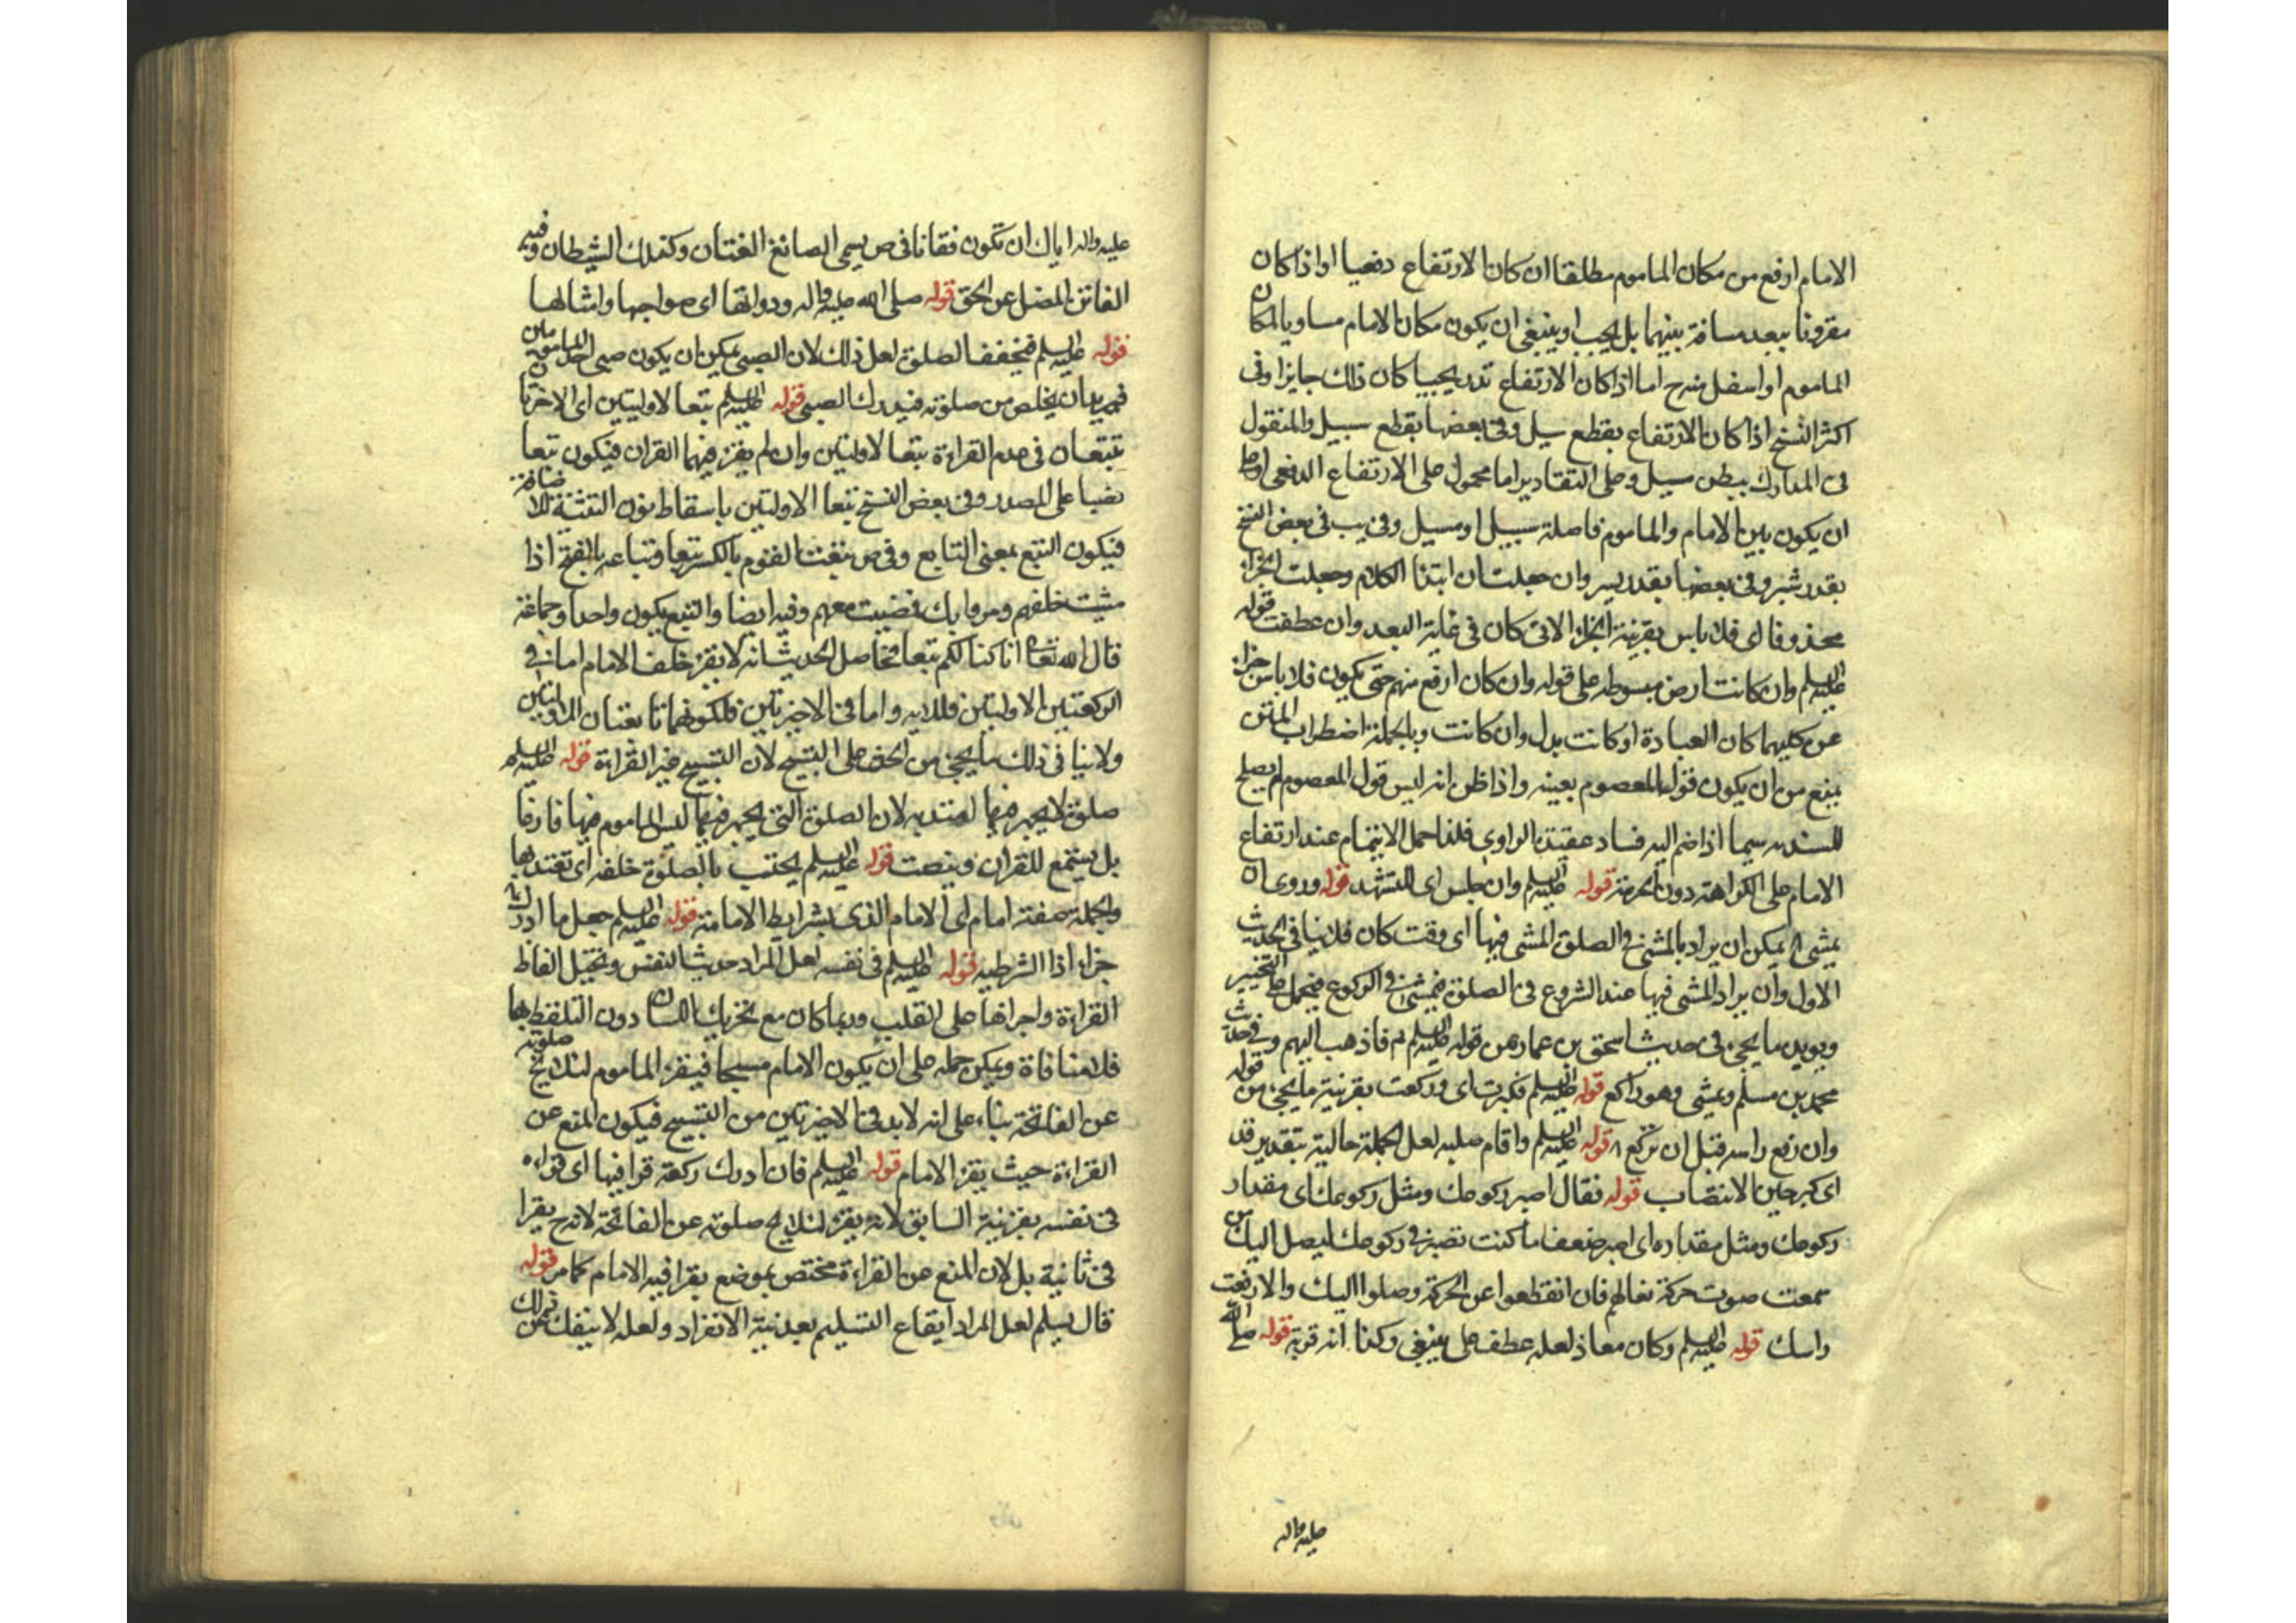 الامام ارفع من مكان الماموم مطلقا ان كان الارتفاع دفعيا او اذا كان
مقرونا ببعد مسافة بينهما بل يجب او ينبغي ان يكون مكان الامام مساويا لمكان
الماموم او اسفل منه ح اما اذا كان الارتفاع تدريجيا كان ذلك جايزا وفى
اكثر النسخ اذا كان الارتفاع بقطع سيل وفى بعضها بقطع سبيل والمنقول
فى المدارك ببطن مسيل وعلى التقادير اما محمول على الارتفاع الدفعى او على
ان يكون بين الامام والماموم فاصلة سبيل او مسيل وفى يب فى بعض النسخ
بقدر شبر وفى بعضها بقدر يسير وان جعلت ان ابتدا الكلام وجعلت الجزاء
محذوفا اى فلا باس بقرينة الجزاء الاتى كان فى غاية البعد وان عطفت قوله
عليه السلم وان كانت ارض مبسوطه على قوله وان كان ارفع منهم حتى يكون فلا باس جزاء
عن كليهما كان العبادة او كانت بدل وان كانت وبالجملة اضطراب المتن
يمنع من ان يكون قول المعصوم بعينه واذا ظن انه ليس قول المعصوم لم يصلح
للسنديه سيما اذا ضم اليه فساد عقيدة الراوى فلذا حمل الايتمام عند ارتفاع
الامام على الكراهته دون الحرمة قوله عليه السلم وان جلس اى للتشهد قوله وروى ان
يمشى اه يمكن ان يراد بالمشى فى الصلوة المشى فيها اى وقت كان فلا ينافى الحديث
الاول وان يراد المشى فيها عند الشروع فى الصلوة فيمشى فى الركوع فيحمل على التخيير
ويويده ما يجىء فى حديث اسحق بن عمار من قوله عليه السلم ثم فاذهب اليهم وفى حديث
محمد بن مسلم ويمشى وهو راكع قوله عليه السلم فكبرت اى وركعت بقرينة ما يجىء من قوله
وان رفع راسه قبل ان تركع قوله عليه السلم واقام صلبه لعل الجملة حالية بتقدير قد
اى كبر حين الانتصاب قوله فقال اصبر ركوعك ومثل ركوعك اى مقدار
ركوعك ومثل مقداره اى اصبر ضعف ما كنت تصبر فى ركوعك ليصل اليك من
سمعت صوت حركة نعالهم فان انقطعوا عن الحركة وصلوا اليك والا رفعت
راسك قوله عليه السلم وكان معاذ لعله عطف على ينبغى وكذا انه قربة قوله صلى الله
عليه واله
عليه واله اياك ان تكون فتانا فى ص يسمى الصائغ الفتان وكذلك الشيطان وفيه
الفاتن المضل عن الحق قوله صلى الله عليه واله وذواتها اى صواحبها وامثالها
قوله عليه السلم فيخفف الصلوة لعل ذلك لان الصبى يمكن ان يكون صبى احد المامومين
فيريد ان يخلص من صلوته فيدرك الصبى قوله عليه السلم تبعا لاوليتين اى الاخرتا
تتبعان فى عدم القراءة تبعا لاولتين وان لم يقرء فيهما القران فيكون تبعا
نصبا على المصدر وفى بعض النسخ تبعا الاولتين باسقاط نون التثنية للاضافة
فيكون التبع بمعنى التابع وفى ص تبعت القوم بالكسر تبعا وتباعه بالفتح اذا
مشيت خلفهم ومروا بك فمضيت معهم وفيه ايضا والتبع يكون واحدا وجماعة
قال الله تعا انا كنا لكم تبعا فحاصل الحديث انه لا يقرء خلف الامام اما فى
الركعتين الاولتين فللايه واما فى الاخيرتين فلكونهما تابعتان للاولتين
ولا ينافى ذلك ما يجىء من الحض على التسبيح لان التسبيح غير القراءة قوله عليه السلم
صلوة لا يجهر فيها لعبته به لان الصلوة التى يجهر فيها ليس الماموم فيها فارغا
بل يستمع للقران وينصت قوله عليه السلم يحتسب بالصلوة خلفه اى تعتد بها
والجملة صفة امام اى الامام الذى بشرايط الامامة قوله عليه السلم جعل ما ادرك
جزاء اذا الشرطيه قوله عليه السلم فى نفسه لعل المراد حديث النفس وتخيل الفاظ
القراءة واجراها على القلب وربما كان مع تحريك اللسان دون التلفظ بها
فلا منافاة ويمكن حمله على ان يكون الامام مسبحا فيقرء الماموم لئلا يخ صلوته
عن الفاتحة بناء على انه لا بد فى الاخيرتين من التسبيح فيكون المنع عن
القراءة حيث يقرء الامام قوله عليه السلم فان ادرك ركعة قرا فيها اى قراءه
فى نفسه بقرينة السابق لانه يقرء لئلا يخ صلوته عن الفاتحة لانه ح يقرا
فى ثانية بل لان المنع عن القراءة مختص بموضع يقرا فيه الامام كما مر قوله
قال يسلم لعل المراد ايقاع التسليم بعد نية الانفراد ولعله لا ينفك عن ذلك